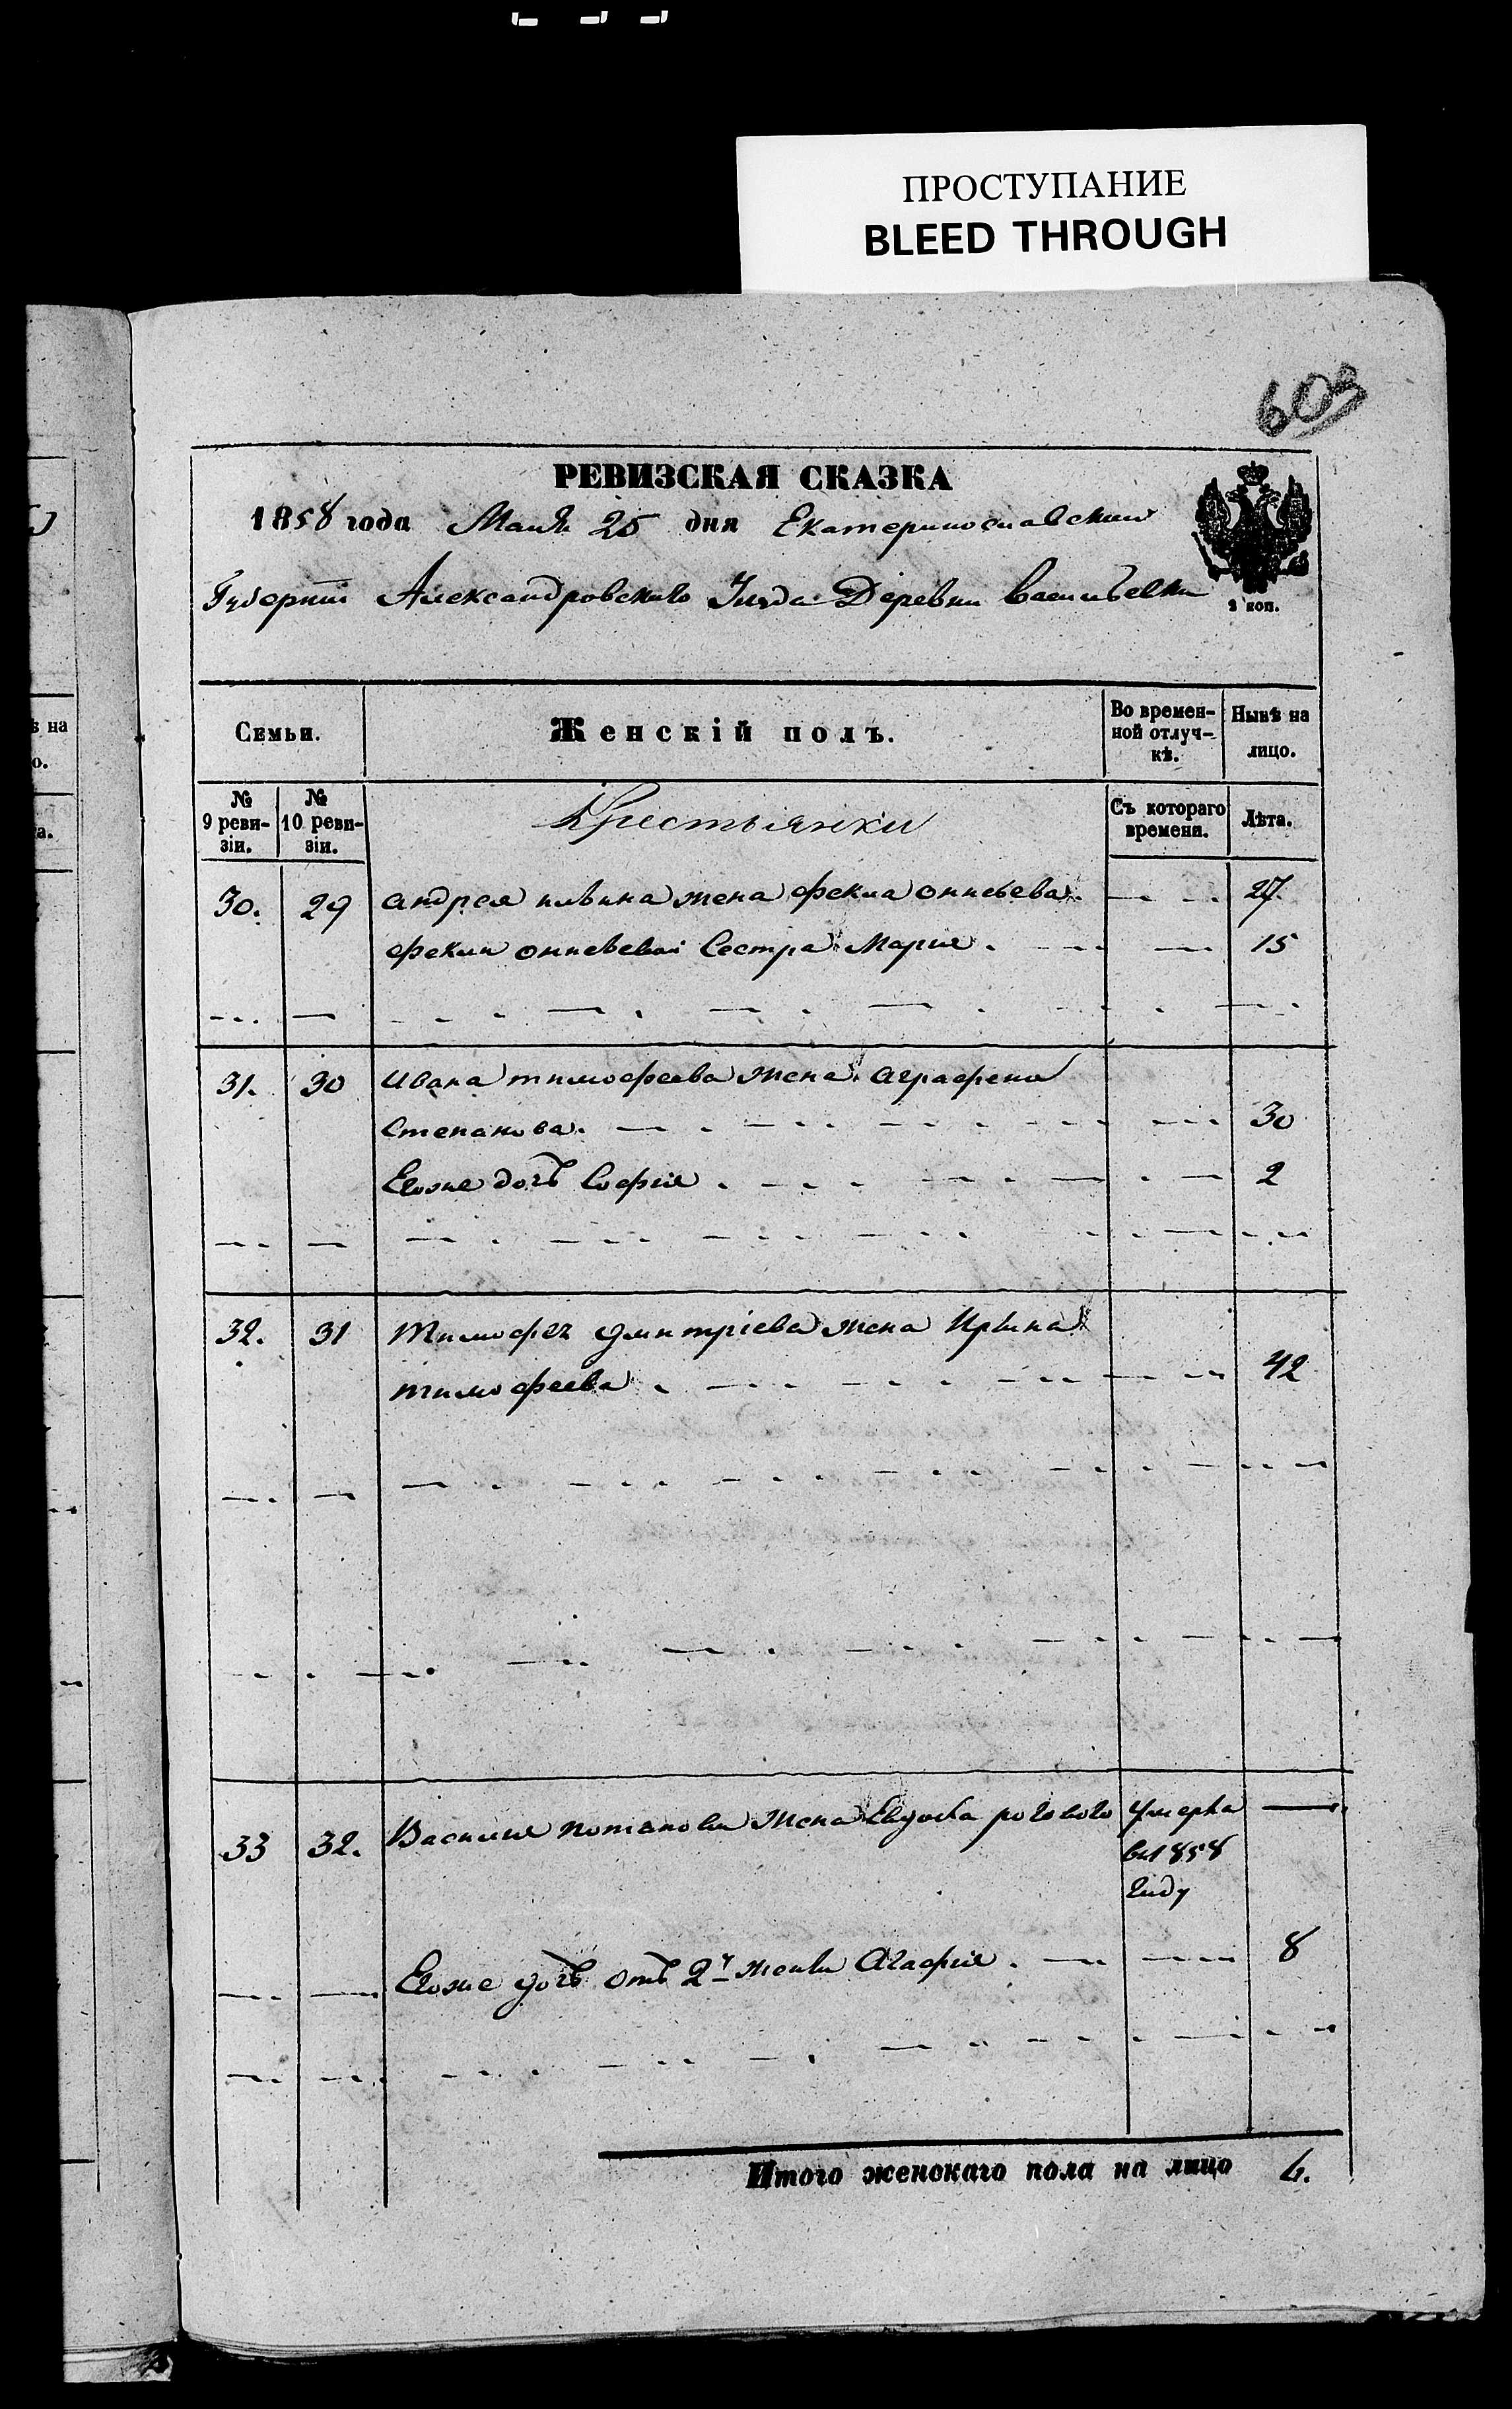 ПРОСТУПАНИЕ
BLEED THROUGH
603
РЕВИЗСКАЯ СКАЗКА
1858 года Маия 25 дня Екатеринославской
Губернiи Александровскаго Уезда Деревни Васильевки
2 коп.
Семьи.
Женскiй полъ.
Во времен-
ной отлуч-
кѣ.
Нынѣ на
лицо.
№
9 реви-
зiи.
№
10 реви-
зiи.
Крестьянки
Съ котораго
времени.
Лѣта.
30. 29 андрея жена фекла 27.
фекли Сестра Мария. 15
31. 30 Ивана тимофеева жена аграфена
Степанова. 30
Егоже дочъ София. 2
32. 31 Тимофея дмитрiева жена Ирина
тимофеева. 42
33 32. Василия потапова жена умерла
в 1858
году
Егоже дочъ отъ 2й жены Агафия. 8
Итого женскаго пола на лицо 6.
ѣ на
о.
а.